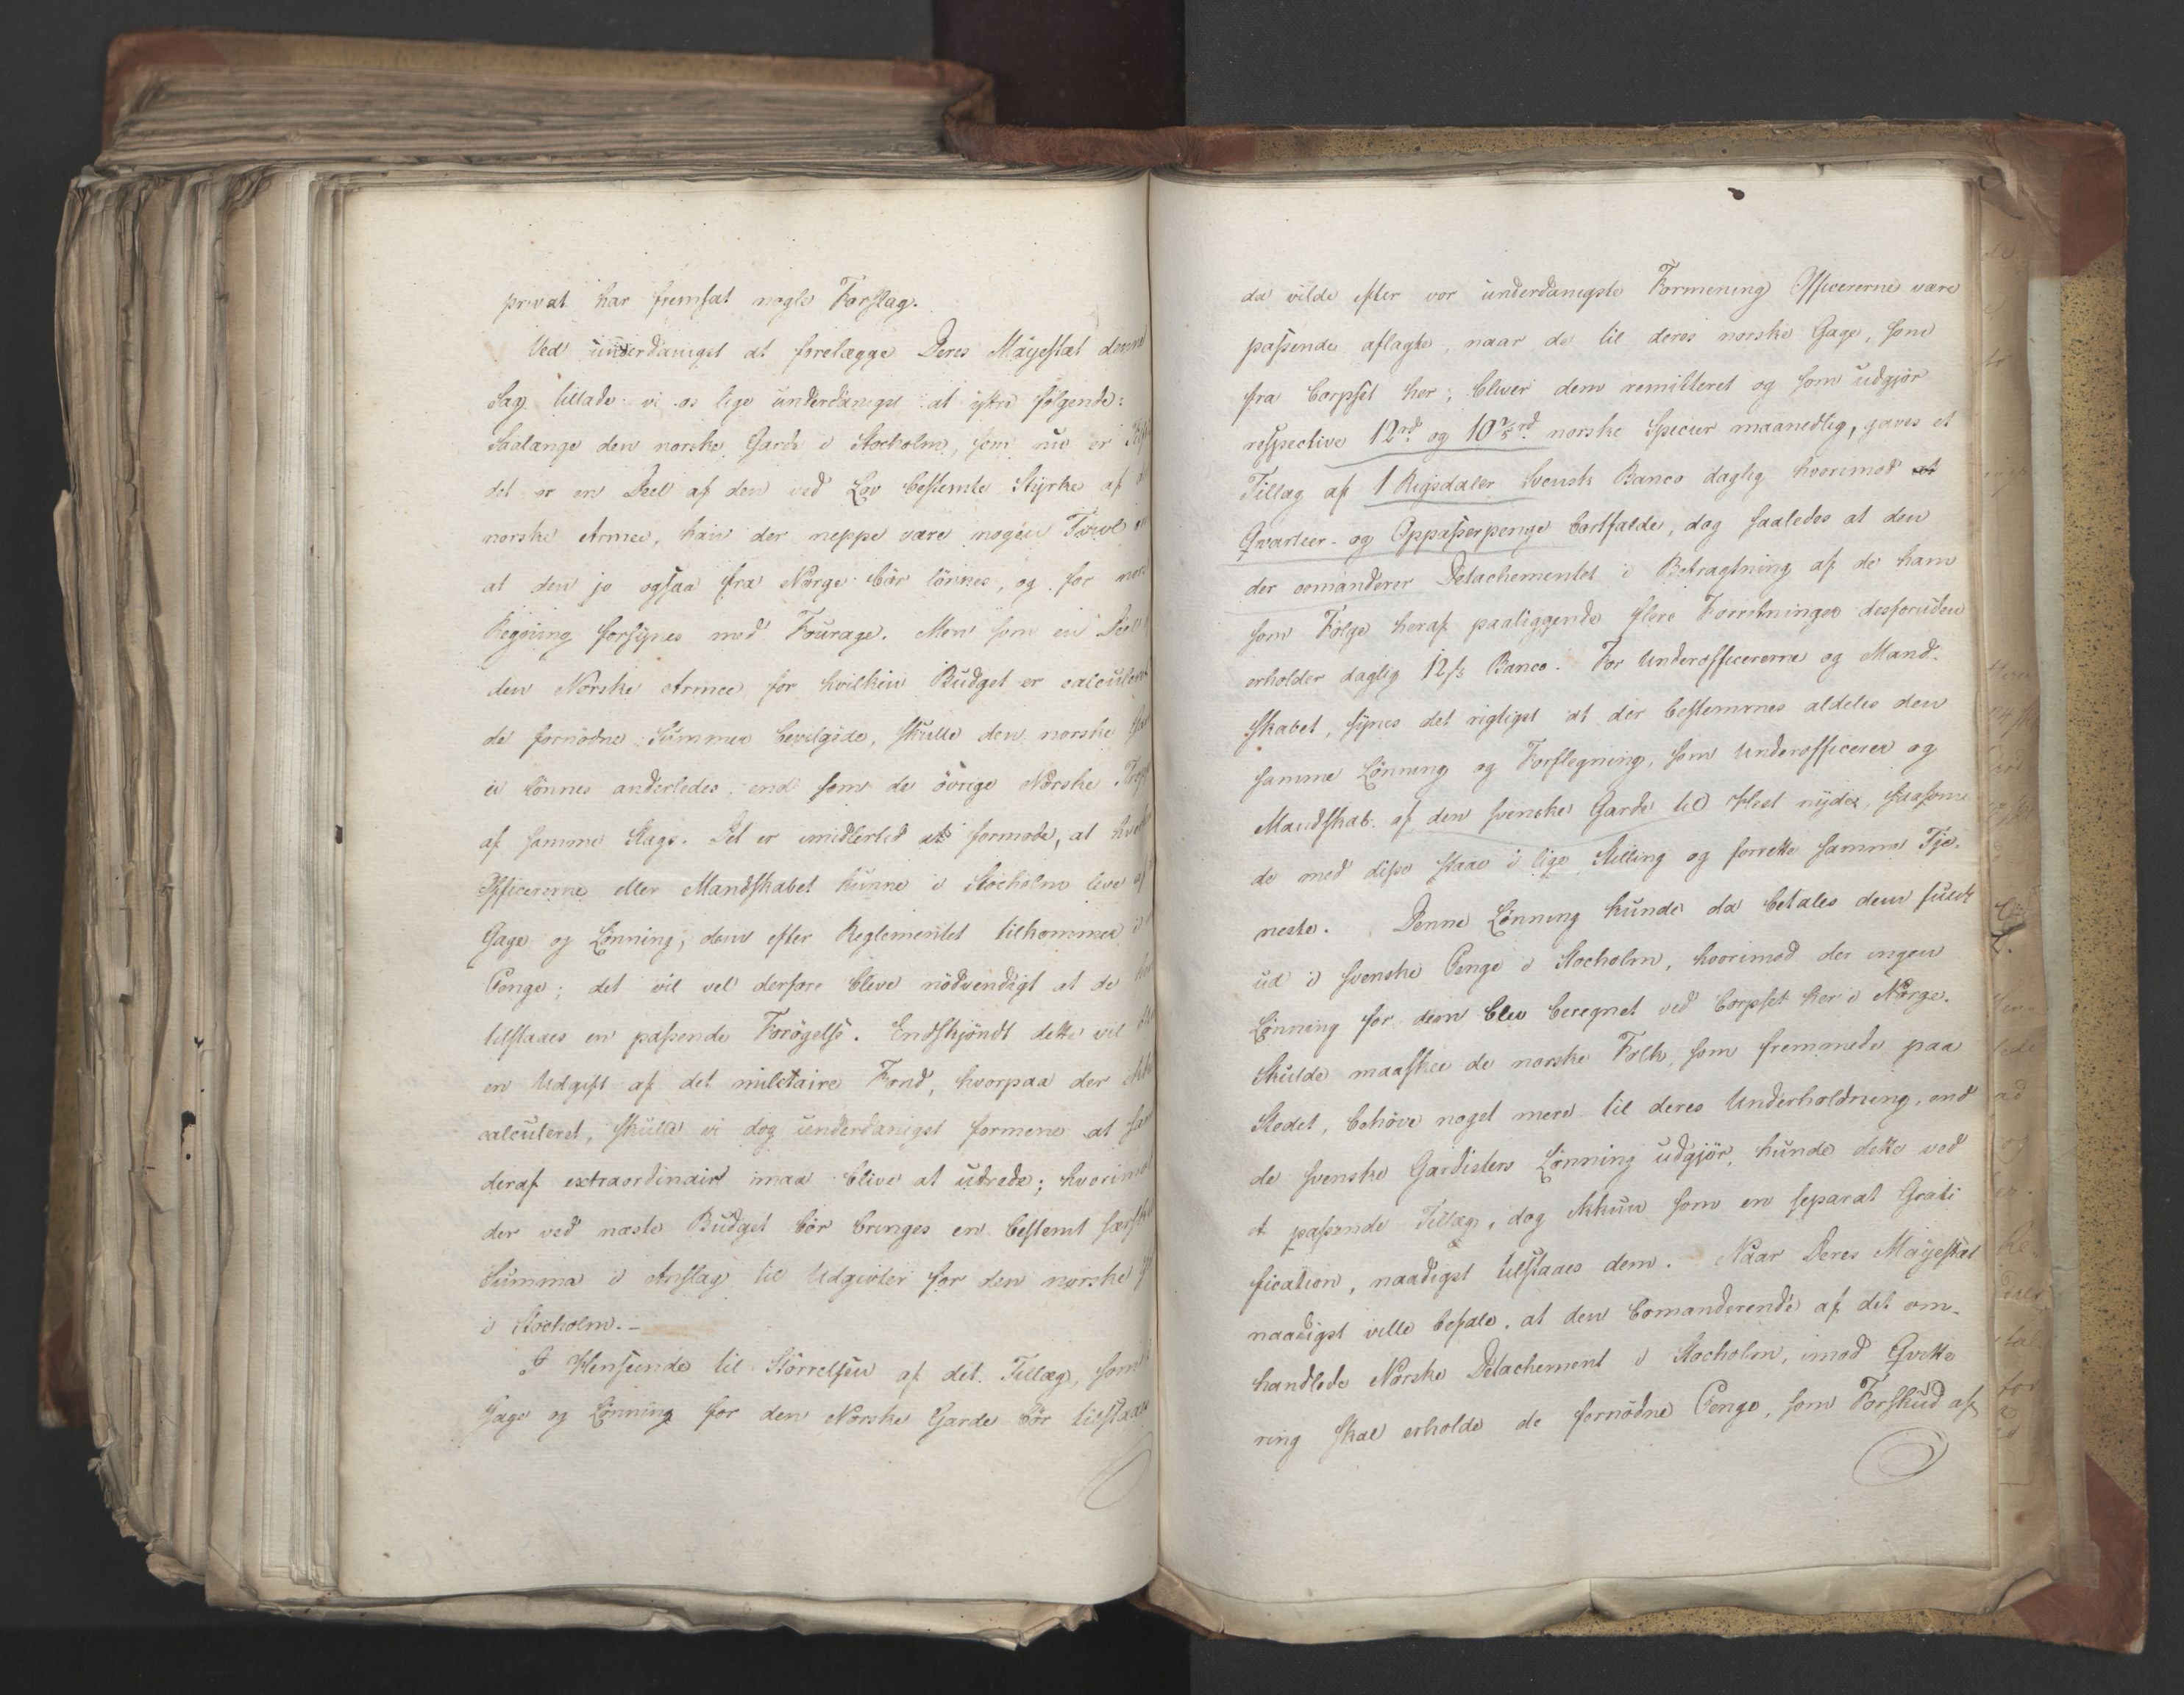 privat har fremsat nogle Forslag.
Ved underdanigst at forelægge Deres Mayestæt denne
Sag tillade vi os lige underdanigst at yttre følgende:
Saalænge den norske Garde i Stocholm, som nu er
det er en Deel af den ved Lov bestemte Styrke af
norske Armee, kan der neppe være nogen Tvivl
at den jo ogsaa fra Norge bør lønnes, og for
Regning forsynes med Fourage. Men som en Deel
den Norske Armee, for hvilken Budget er calculeret
de fornødne Summer bevilgede, skulle den norske
ei lønnes anderledes end som de øvrige Norske
af samme Slags. Det er imidlertid at formode, at
Officererne eller Mandskabet kunne i Stocholm leve af
Gage og Lønning, dem efter Reglementet tilkommer i
Penge; det vil vel derfore blive nødvendigt at de
tilstaaes en passende Forøgelse. Endskjøndt dette vil
en Udgift af det militaire Fond, hvorpaa der
calculeret, skulle vi dog underdanigst formene at
deraf extraordinairt maa blive at udrede; hvorimod
der ved næste Budget bør bringes en bestemt særskilt
Summa i Anslag til Udgivter for den norske
i Stocholm. –
I Henseende til Størrelsen af det Tillæg, som
Gage og Lønning for den Norske Garde bør tilstaaes
da vilde efter vor underdanigste Formening Officererne være
passende aflagte, naar de til deres norske Gage, som
fra Corpset her, bliver dem remitteret og som udgjør
respective 12rd. og 10 rd. norske Specier maanedlig, gaves et
Tillæg af 1 Rigsdaler Svensk Banco daglig hvorimod at
Qvarteer- og Oppasserpenge bortfalde, dog saaledes at den
der comanderer Detachementet i Betragtning af de ham
som Følge heraf paaliggende flere Forretninger desforuden
erholder daglig 12 ß Banco. For Underofficererne og Mand-
skabet, synes det rigtigst at der bestemmes aldeles den
samme Lønning og Forflegning, som Underofficerer og
Mandskab af den svenske Garde til Hest nyder, saasom
de med disse staae i lige Stilling og forrette samme Tje-
neste. Denne Lønning kunde da betales dem fuldt
ud i svenske Penge i Stocholm, hvorimod der ingen
Lønning for dem blev beregnet ved Corpset her i Norge.
Skulde maaskee de norske Folk, som fremmede paa
Stedet, behøve noget mere til deres Underholdning, end
de svenske Gardisters Lønning udgjør, kunde dette ved
et passende Tillæg, dog ikkun som en separat Grati
fication, naadigst tilstaaes dem. Naar Deres Mayestæt
naadigst ville befale, at den Comanderende af det om-
handlede Norske Detachement i Stocholm, imod Qvitte
ring skal erholde de fornødne Penge, som Forskud af